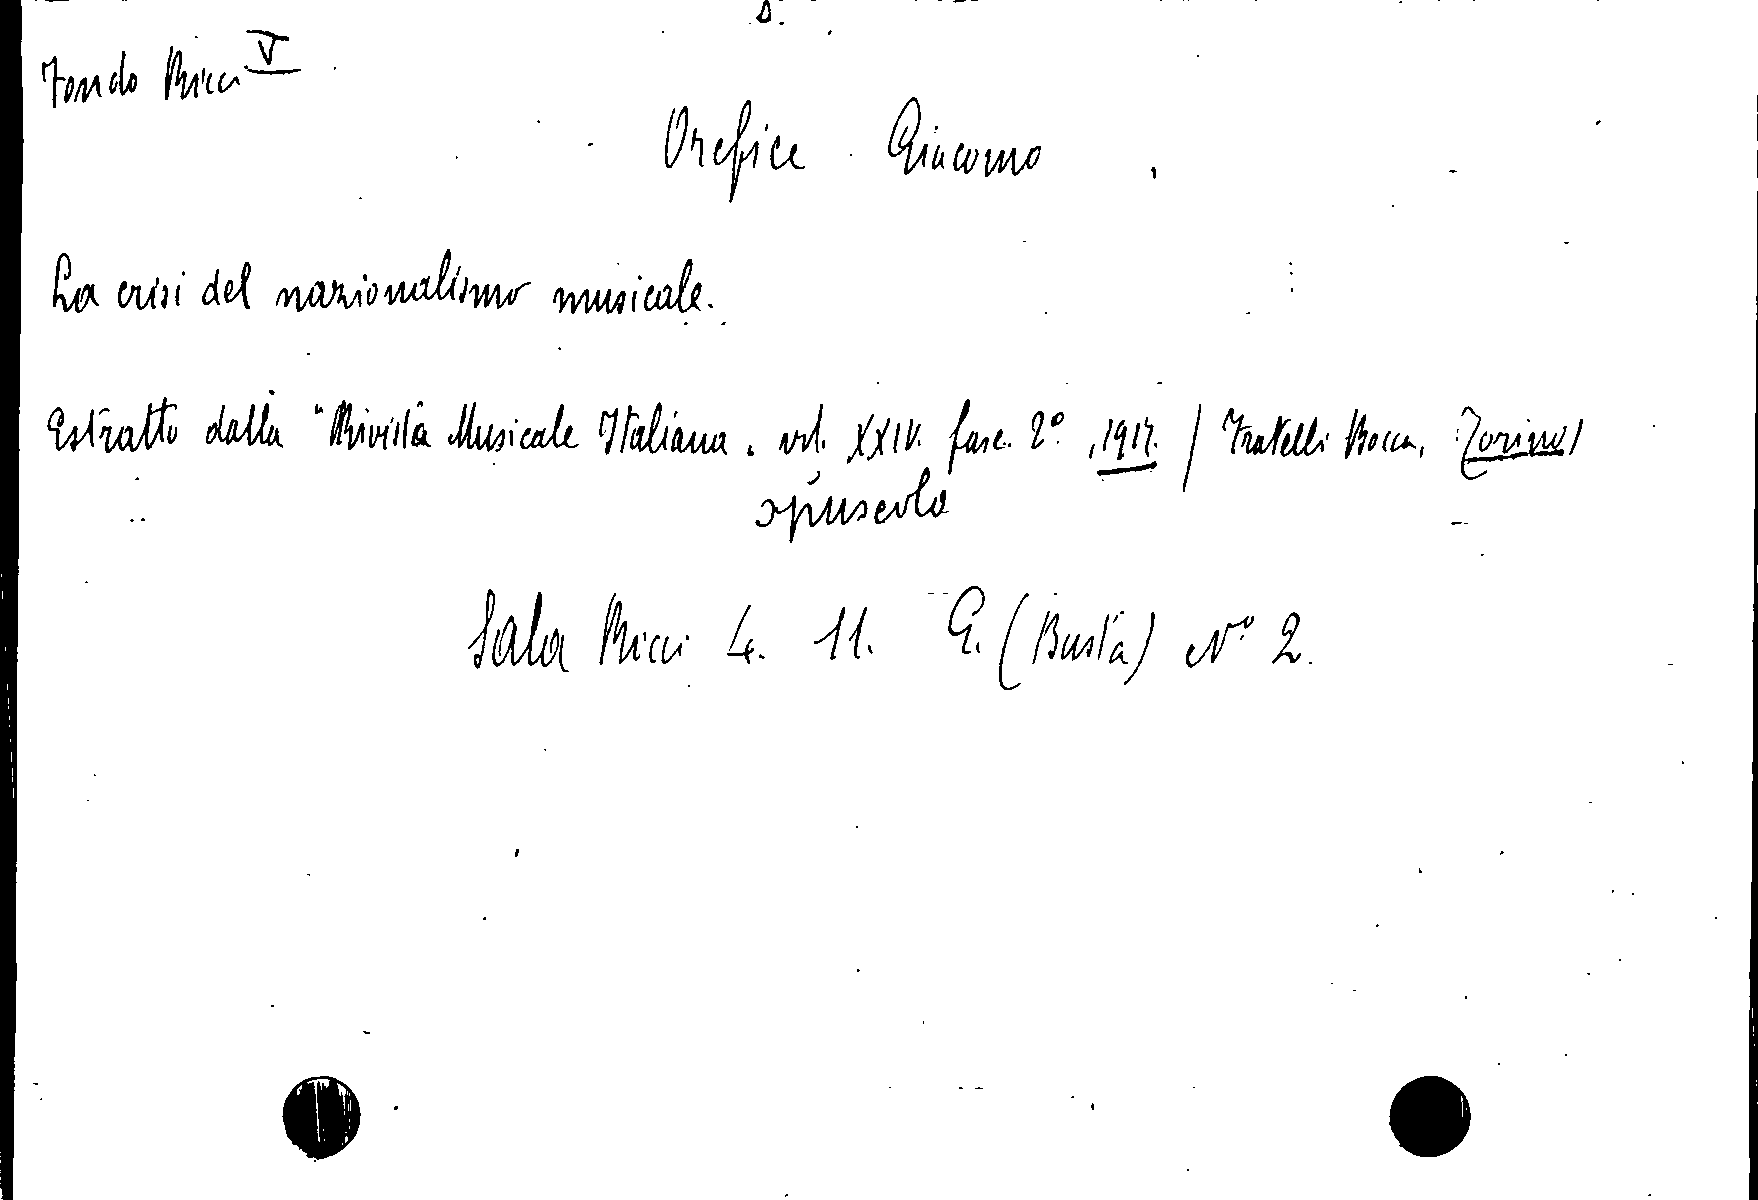 Fondo Ricci V
Orefice Giacomo
La crisi del nazionalismo musicale.
Estratto dalla "Rivista Musicale Italiana. vol. XXIV. fasc. 2º, 1917. / Fratelli Bocca, Torino/
opuscolo
Sala Ricci 4. 11. G. (Busta) Nº 2.